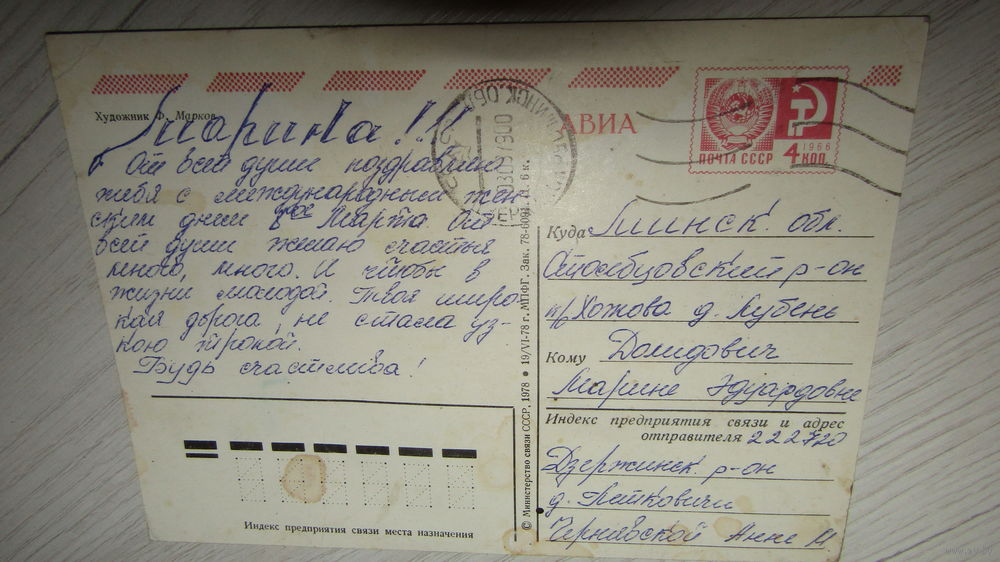 Художник Ф. Марков
Марина!!!
От всей души поздравляю
тебя с международным жен-
ским днём 8ое Марта. От
всей души желаю счастья
много, много. И чтобы в
жизни молодой. Твоя широ-
кая дорога, не стала уз-
кою тропой.
Будь счастлива!
Индекс предприятия связи места назначения
© Министерство связи СССР, 1978 • 19/VI-78 г. МПФГ. Зак. 78-6091. Ц. 6 к.
АВИА
ПОЧТА СССР
1966
4 КОП
Куда Минск. обл.
Столбцовский р-он
п/Хотова д. Кубень
Кому Домидович
Марине Эдуардовне
Индекс предприятия связи и адрес
отправителя 222720
Дзержинск р-он
д. Петковичи
Анне И